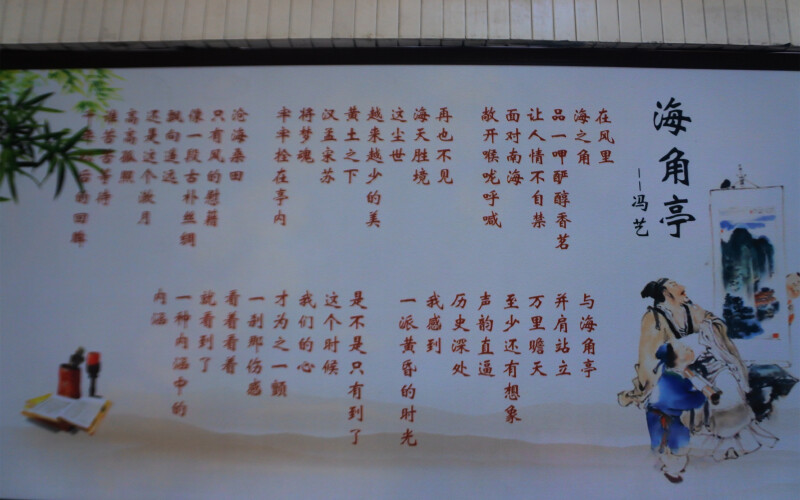 海角亭
——冯艺
在风里
海之角
品一呷酽醇香茗
让人情不自禁
面对南海
敞开喉咙呼喊
再也不见
海天胜境
这尘世
越来越少的美
黄土之下
汉孟宋苏
将梦魂
牢牢拴在亭内
沧海桑田
只有风的慰藉
像一段古朴丝绸
飘向遥远
还是这个月
高高孤照
谁苦苦待
的回眸
与海角亭
并肩站立
万里瞻天
至少还有想象
声韵直逼
历史深处
我感到
一派黄昏的时光
是不是只有到了
这个时候
我们的心
才为之一颤
一刹那伤感
看着看着
就看到了
一种内涵中的
内涵